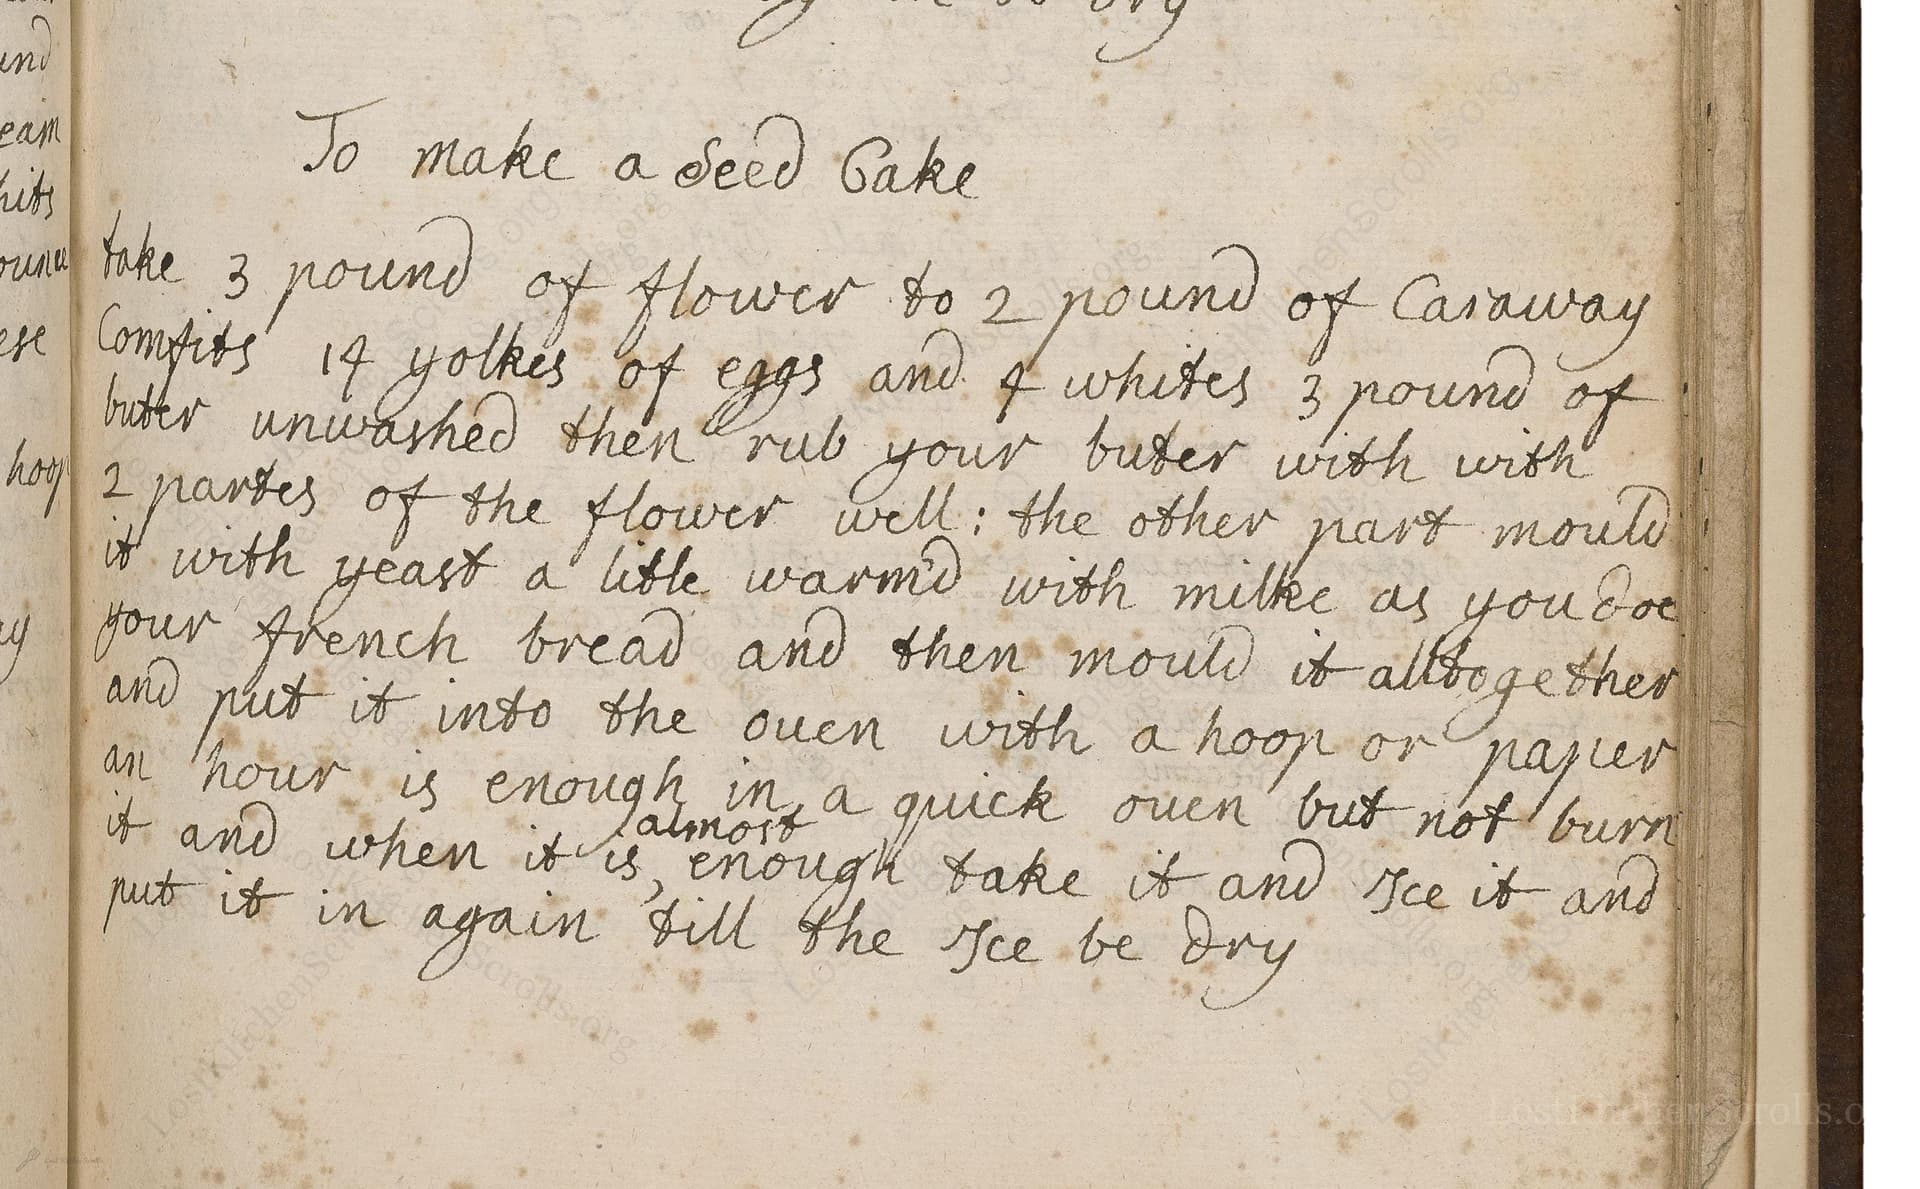 und
eam
hits
ounce
ese
hoop
ay
To make a Seed Cake
take 3 pound of flower to 2 pound of Caraway
Comfits 14 yolkes of eggs and 4 whites 3 pound of
buter unwashed then rub your buter with with
2 partes of the flower well : the other part mould
it with yeast a litle warm'd with milke as you doe
your french bread and then mould it alltogether
and put it into the oven with a hoop or paper
an hour is enough in a quick oven but not burn
almost
it and when it is, enough take it and Ice it and
put it in again till the Ice be dry
LostKitchenScrolls.o